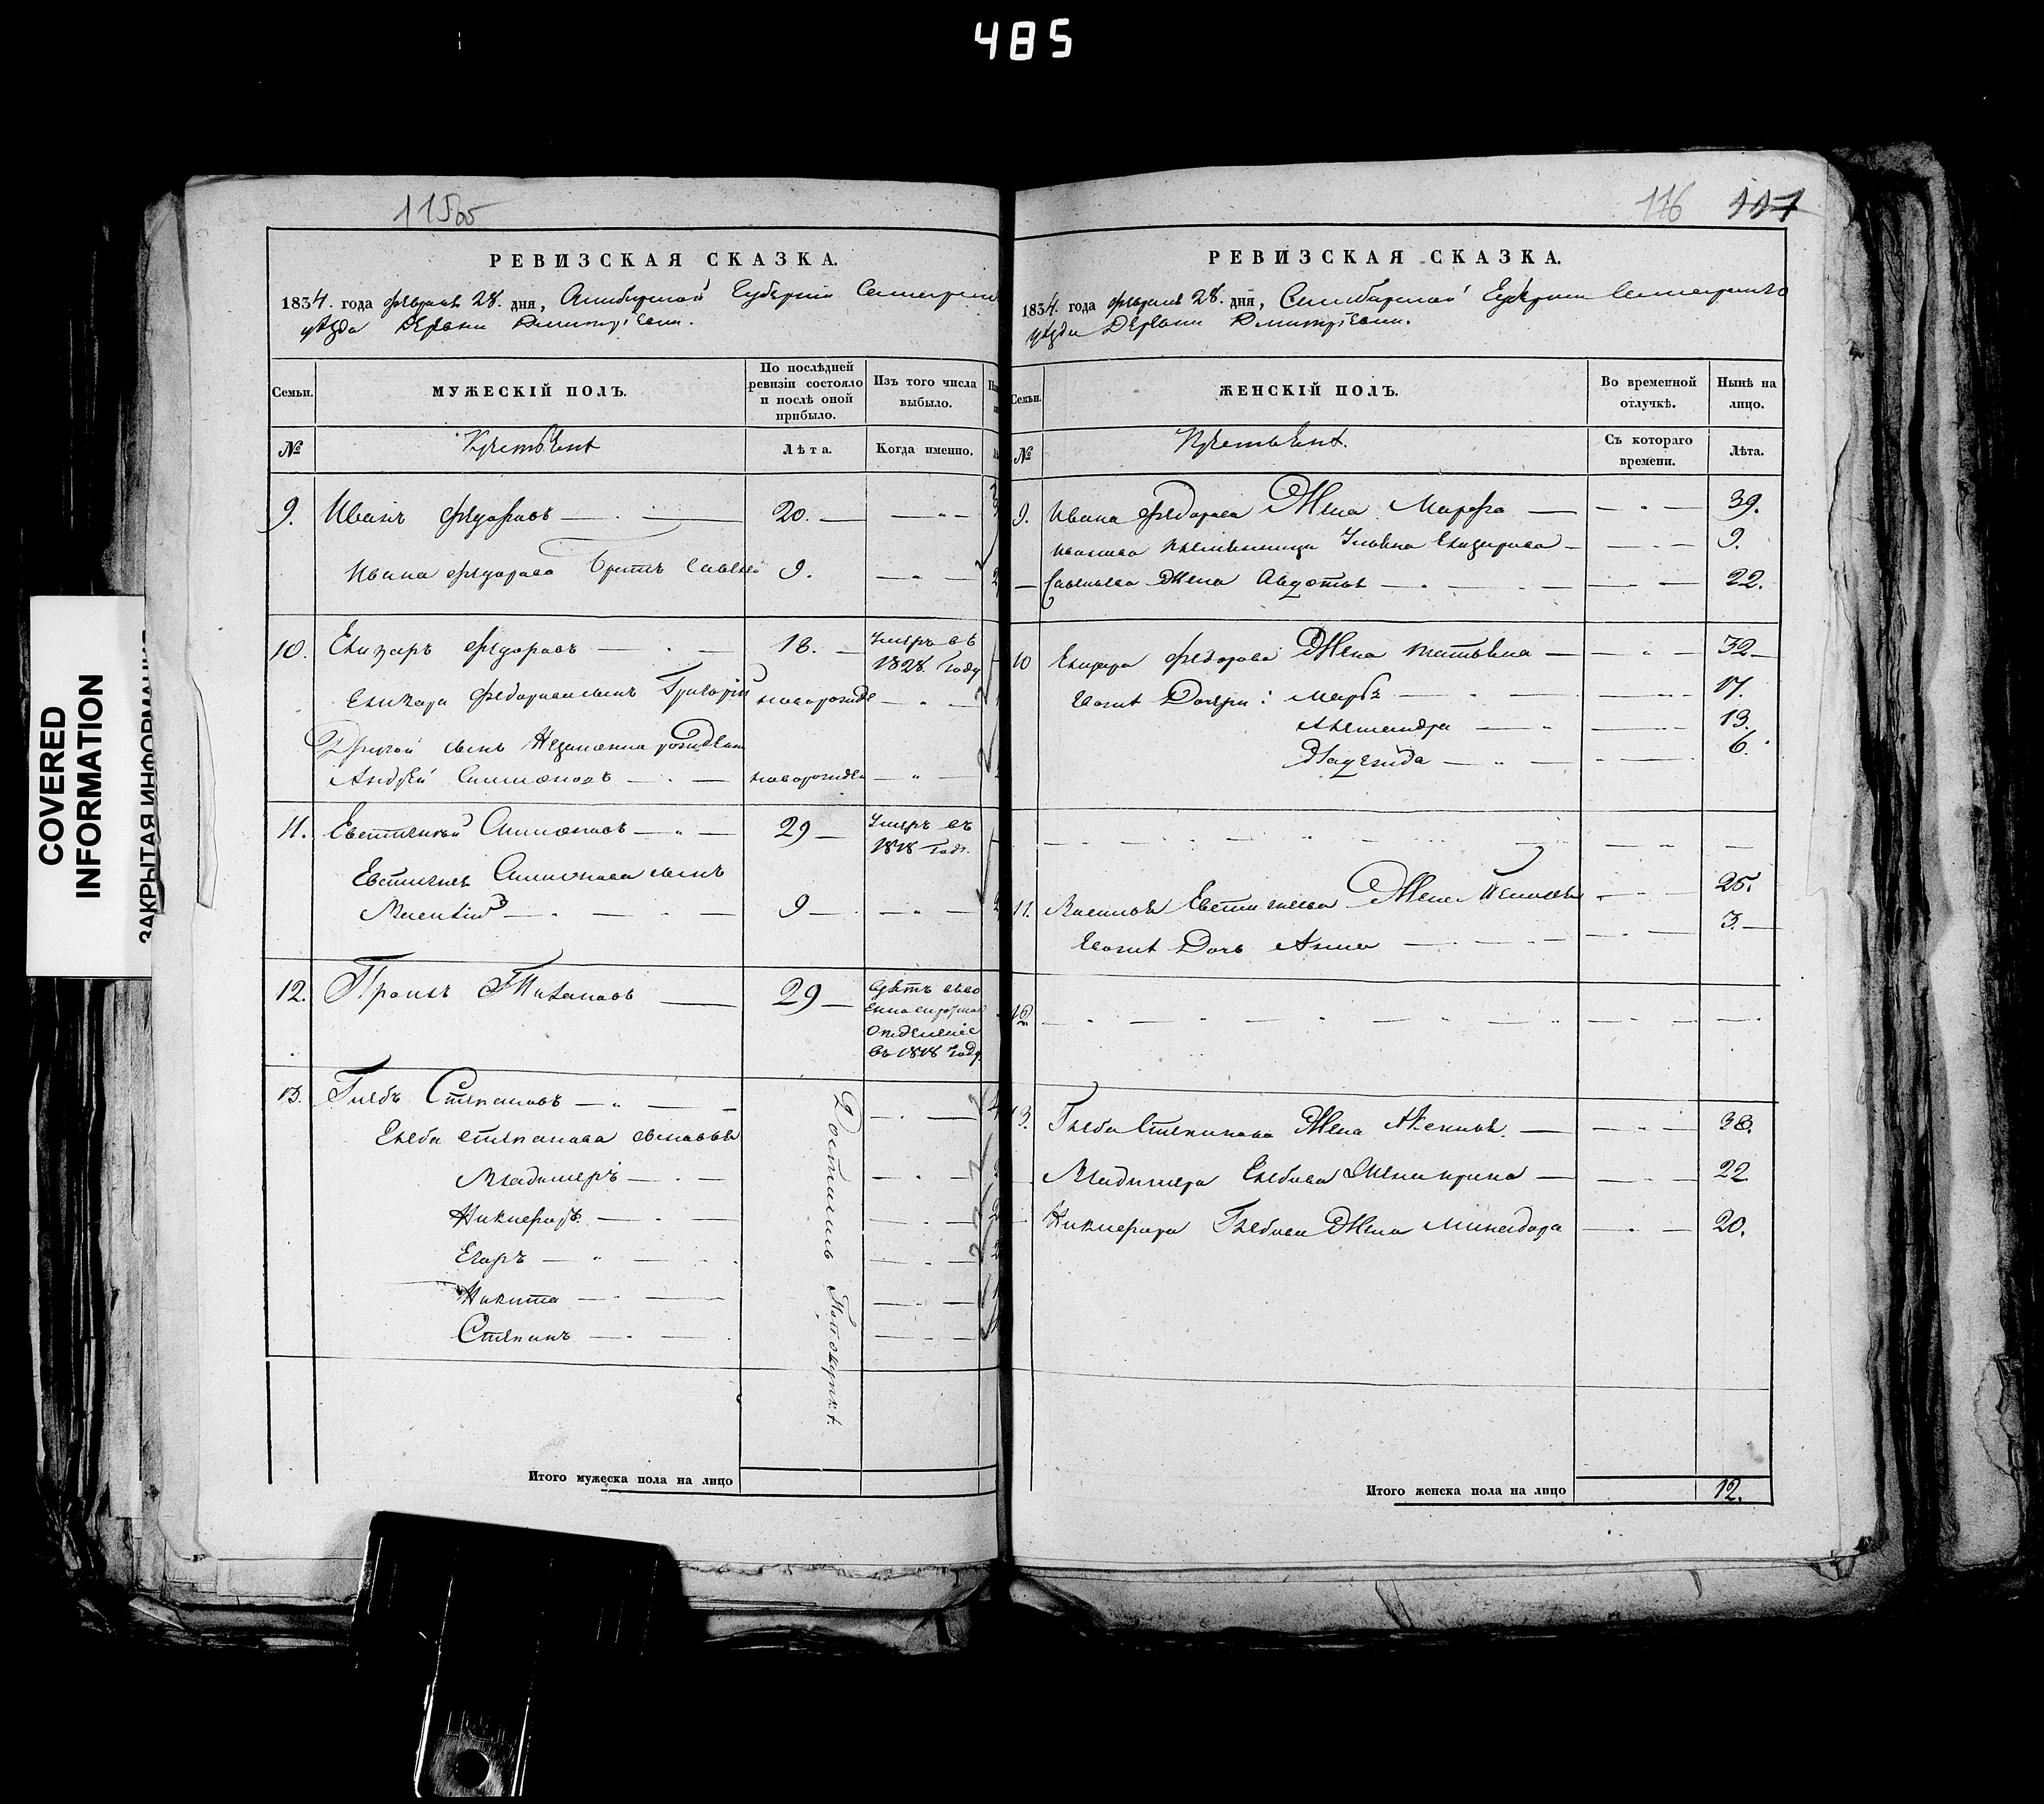 485
115об
РЕВИЗСКАЯ СКАЗКА.
1834. года февраля 28. дня, Симбирской Губернии
уѣзда Деревни Дмитрiевки.
Семьи.
МУЖЕСКІЙ ПОЛЪ.
По послѣдней ревизіи состояло и послѣ оной прибыло.
Изъ того числа выбыло.
№
Крестьянѣ
Лѣта.
Когда именно.
9. Иванъ Федоровъ 20.
Ивана Федорова братъ Савелей 9.
10. Елизаръ Федоровъ 18. Умеръ въ
1828 году
Елизара Федорова сынъ Григорій новорожде
Другой сынъ Незаконно рожденый
Андрей Симионовъ новорожде
11. Евстигнѣй Симионовъ 29 Умеръ въ
1818 году.
Евстигнея Симионова сынъ
Василій 9
12. Тихановъ 29 Отдатъ въ во
отделенiе
въ 1818 году
13. Глебъ Степановъ
Глеба Степанова сыновья
Владимеръ
Никифоръ
Егоръ
Никита
Степанъ
Достались По покупкѣ.
Итого мужеска пола на лицо
116 117
РЕВИЗСКАЯ СКАЗКА.
1834. года февраля 28. дня, Симбирской Губернии
уѣзда Деревни Дмитрiевки.
Семьи.
ЖЕНСКІЙ ПОЛЪ.
Во временной отлучкѣ.
Нынѣ на лицо.
№
Крестьянѣ.
Съ котораго времени.
Лѣта.
9. Ивана Федорова Жена Марфа 39.
Иванова племянница Ульяна Елизарова 9.
Савельева Жена Авдотья 22.
10 Елизара Федорова Жена Татьяна 32
Евоиѣ Дочери: Марья 17.
Александра 13.
Надежда 6.
11. Василья Евстигнеева Жена 25.
Евоиѣ Дочь Анна 3.
12.
13. Глеба Степанова Жена Аксинья. 38.
Владимера Глебова Жена Ирина 22
Никифора Глебова Жена Минадора 20.
Итого женска пола на лицо 12.
COVERED
INFORMATION
ЗАКРЫТАЯ ИНФОРМАЦИЯ